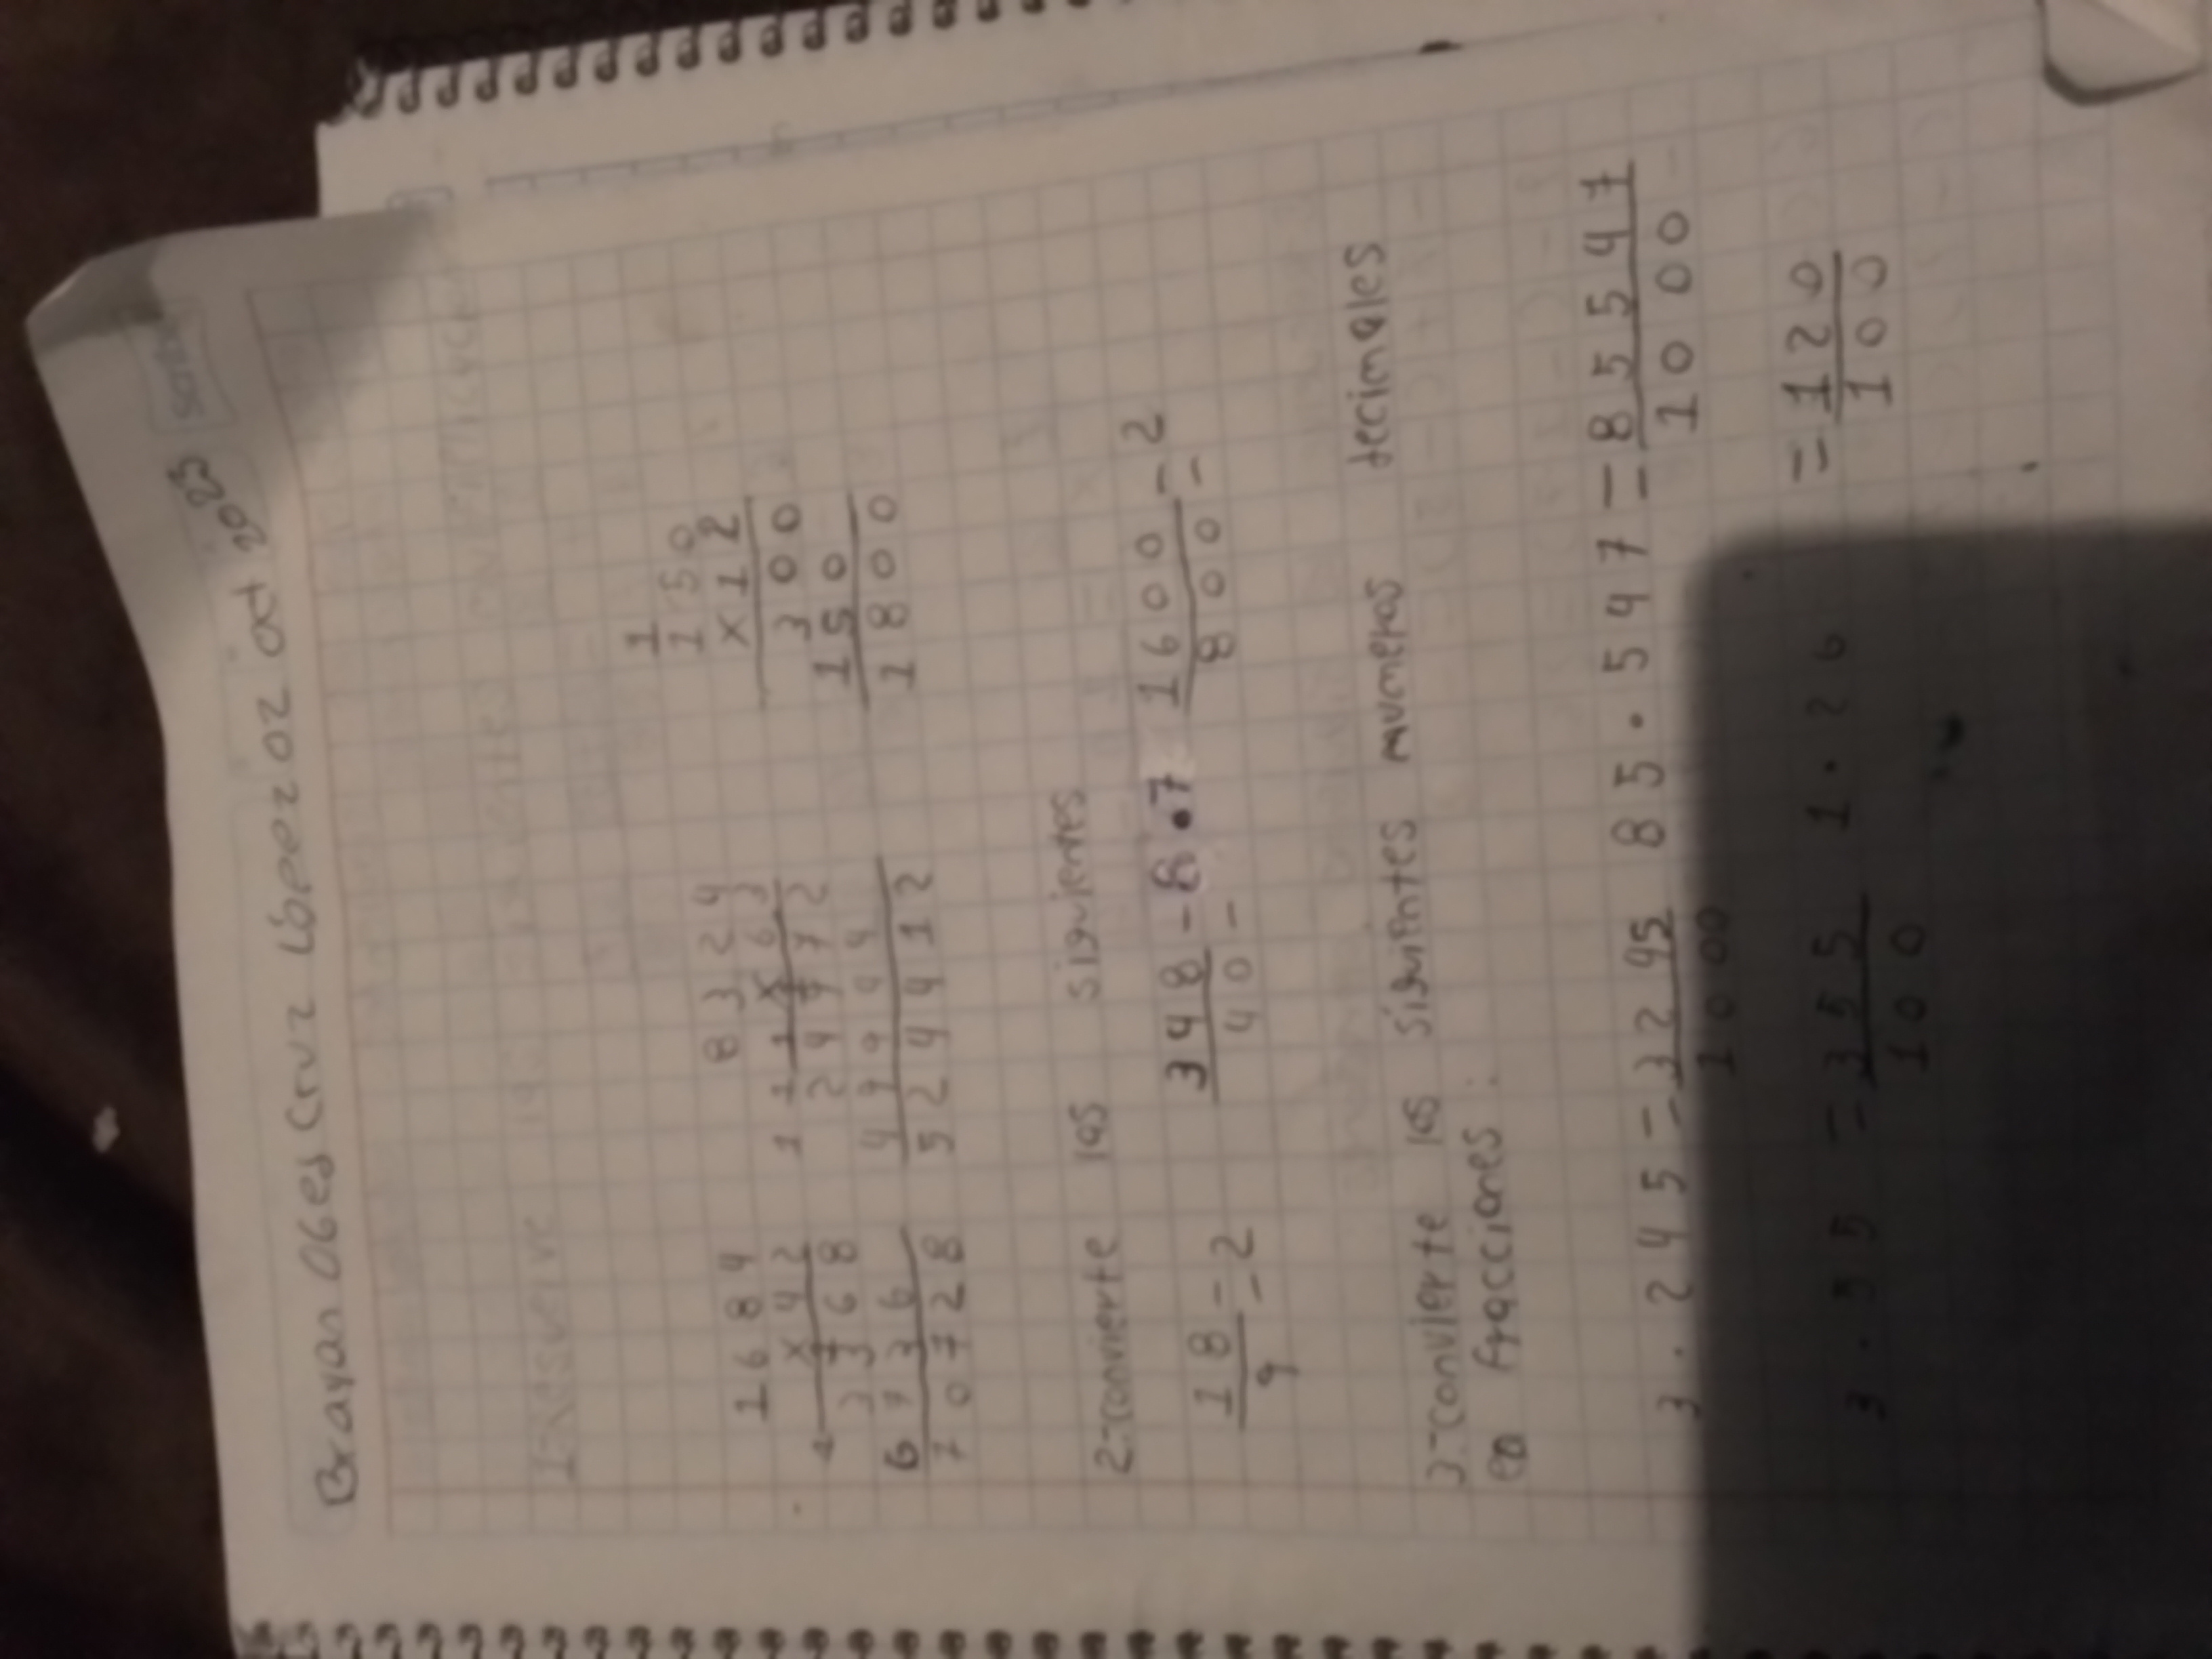 Brayan Oges Cruz López 02 oct 2023
1-Resuelve
1684
x 42
3368
6736
70728
8324
x63
24972
49944
524412
1
150
x12
300
150
1800
2-convierte las siguientes
18/9 = 2
348/40 = 8.7
1600/800 = 2
3-convierte los siguintes numeros decimales
en fracciones:
3.245 = 3245/1000 85.547 = 85547/10000
3.55 = 355/100 1.26 = 120/100